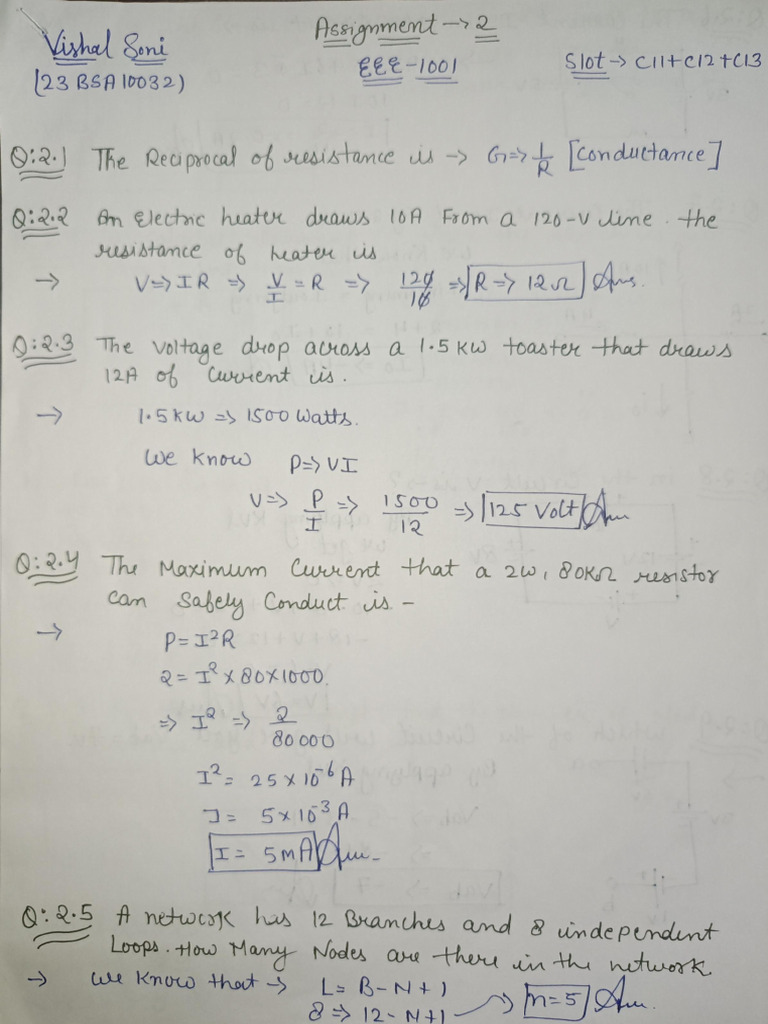 Assignment → 2
Vishal Soni
EEE-1001
Slot → C11+C12+C13
(23BSA10032)
Q:2.1 The Reciprocal of resistance is → G ⇒ 1/R [conductance]
Q:2.2 An Electric heater draws 10A From a 120-V line. the
resistance of heater is
→ V ⇒ IR ⇒ V/I = R ⇒ 120/10 ⇒ R ⇒ 12Ω Ans.
Q:2.3 The voltage drop across a 1.5 KW toaster that draws
12A of Current is.
→ 1.5KW ⇒ 1500 Watts.
We know P ⇒ VI
V ⇒ P/I ⇒ 1500/12 ⇒ 125 Volt Ans
Q:2.4 The Maximum Current that a 2W, 80KΩ resistor
can Safely Conduct is -
→ P = I²R
2 = I² × 80×1000.
⇒ I² ⇒ 2/80000
I² = 25 × 10⁻⁶ A
I = 5×10⁻³ A
I = 5MA Ans-
Q:2.5 A network has 12 Branches and 8 independent
Loops. How Many Nodes are there in the network.
→ We Know that → L = B-N+1
8 ⇒ 12-N+1 → n=5 Ans.